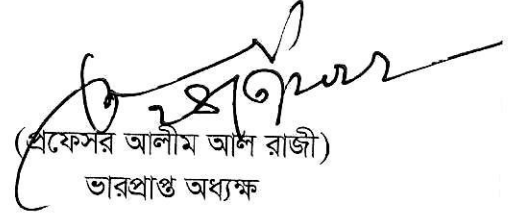 (প্রফেসর আলীম আল রাজী)
ভারপ্রাপ্ত অধ্যক্ষ